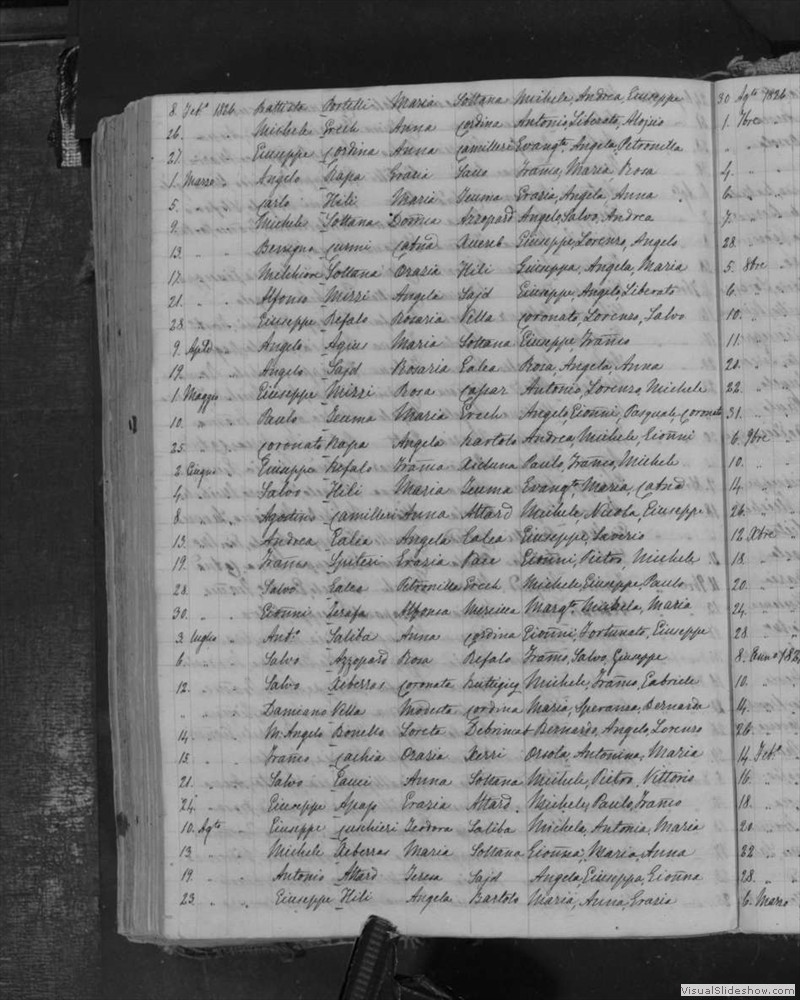 8 Feb.º 1826 Battista Portelli Maria Soltana Michele, Andrea, Giuseppe 30 Agto 1826
26 " " Michele Grech Anna Cordina Antonio, Liberato, Alojsio 1. 7bre
27 " " Giuseppe Cordina Anna Camilleri Evangta, Angela, Petronilla "
1. Marzo " Angelo Rapa Grazia Franco, Maria, Rosa 4. "
5. " " Carlo Hili Maria Zeuma Grazia, Angela, Anna 6. "
9. " " Michele Soltana Domca Azzopard Angelo, Salvo, Andrea 7. "
13. " " Benigno Curmi Catna Xuereb Giuseppe, Lorenzo, Angelo 28. "
17. " " Melchiore Soltana Orazia Hili Giuseppa, Angela, Maria 5. 8bre
21. " " Alfonso Mizzi Angela Sajd Giuseppe, Angelo, Liberato 6. "
28 " " Giuseppe Refalo Rosaria Villa Coronato, Lorenzo, Salvo 10. "
9. Aple " Angelo Agius Maria Soltana Giuseppe, Franco 11. "
19. " " Angelo Sajd Rosaria Galea Rosa, Angela, Anna 20. "
1. Maggio " Giuseppe Mizzi Rosa Caspar Antonio, Lorenzo, Michele 22. "
10. " " Paulo Zeuma Maria Grech Angelo, Gionni, Pasquale, Coronato 31. "
25. " " Coronato Rapa Angela Bartolo Andrea, Michele, Gionni 6. 9bre
2. Giugno " Giuseppe Refalo Franca Xicluna Paulo, Franco, Michele 10. "
4. " " Salvo Hili Maria Zeuma Evangta, Maria, Catna 14 "
8. " " Agostino Camilleri Anna Attard Michele, Nicola, Giuseppe 26. "
13. " " Andrea Galea Angela Galea Giuseppe, Saverio 12 Xbre
19. " " Franco Spiteri Grazia Pace Gionni, Pietro, Michele 18. "
28. " " Salvo Galea Petronilla Grech Michele, Giuseppe, Paulo 20. "
30. " " Gionni Alfonsa Mercieca Margta, Michela, Maria 24. "
3. Luglio " Anto Saliba Anna Cordina Gionni, Fortunato, Giuseppe 28. "
6. " " Salvo Azzopard Rosa Refalo Franco, Salvo, Giuseppe 8.
12. " " Salvo Xeberras Coronata Buttigieg Michele, Franco, Gabriele 10. "
" " " Damiano Villa Modesta Cordina Maria, Speranza, Bernarda 14. "
14. " " M. Angelo Bonello Loreta Debrincat Bernardo, Angelo, Lorenzo 26. "
15. " " Franco Cachia Orazia Xerri Orsola, Antonina, Maria 14. Feb.º
21. " " Salvo Gauci Anna Soltana Michele, Pietro, Vittorio 16. "
24. " " Giuseppe Apap Grazia Attard Michele, Paulo, Franco 18. "
10. Agto " Giuseppe Cuschieri Teodora Saliba Michela, Antonia, Maria 20 "
13 " " Michele Xeberras Maria Soltana Gionna, Maria, Anna 22 "
19. " " Antonio Attard Teresa Sajd Angela, Giuseppa, Gionna 28. "
23. " " Giuseppe Hili Angela Bartolo Maria, Anna, Grazia 6. Marzo
VisualSlideshow.com